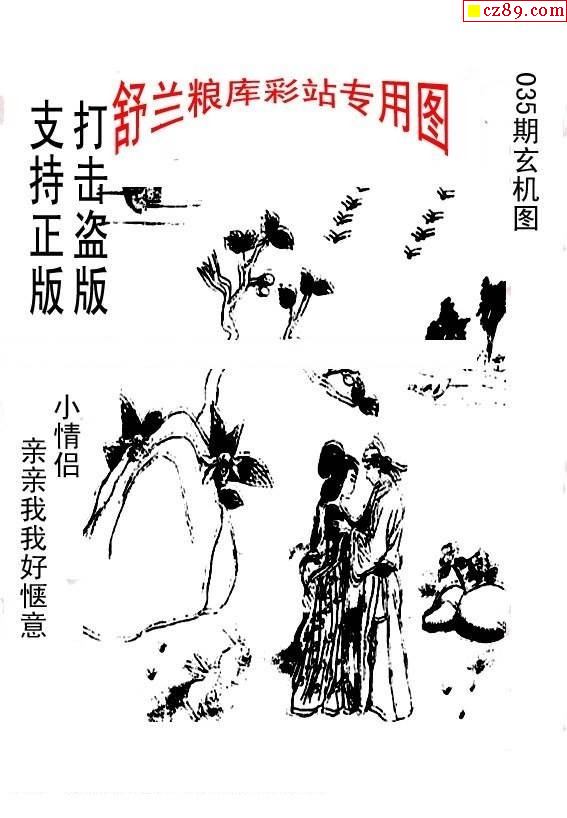 cz89.com
舒兰粮库彩站专用图
035期玄机图
打击盗版
支持正版
小情侣
亲亲我我好惬意